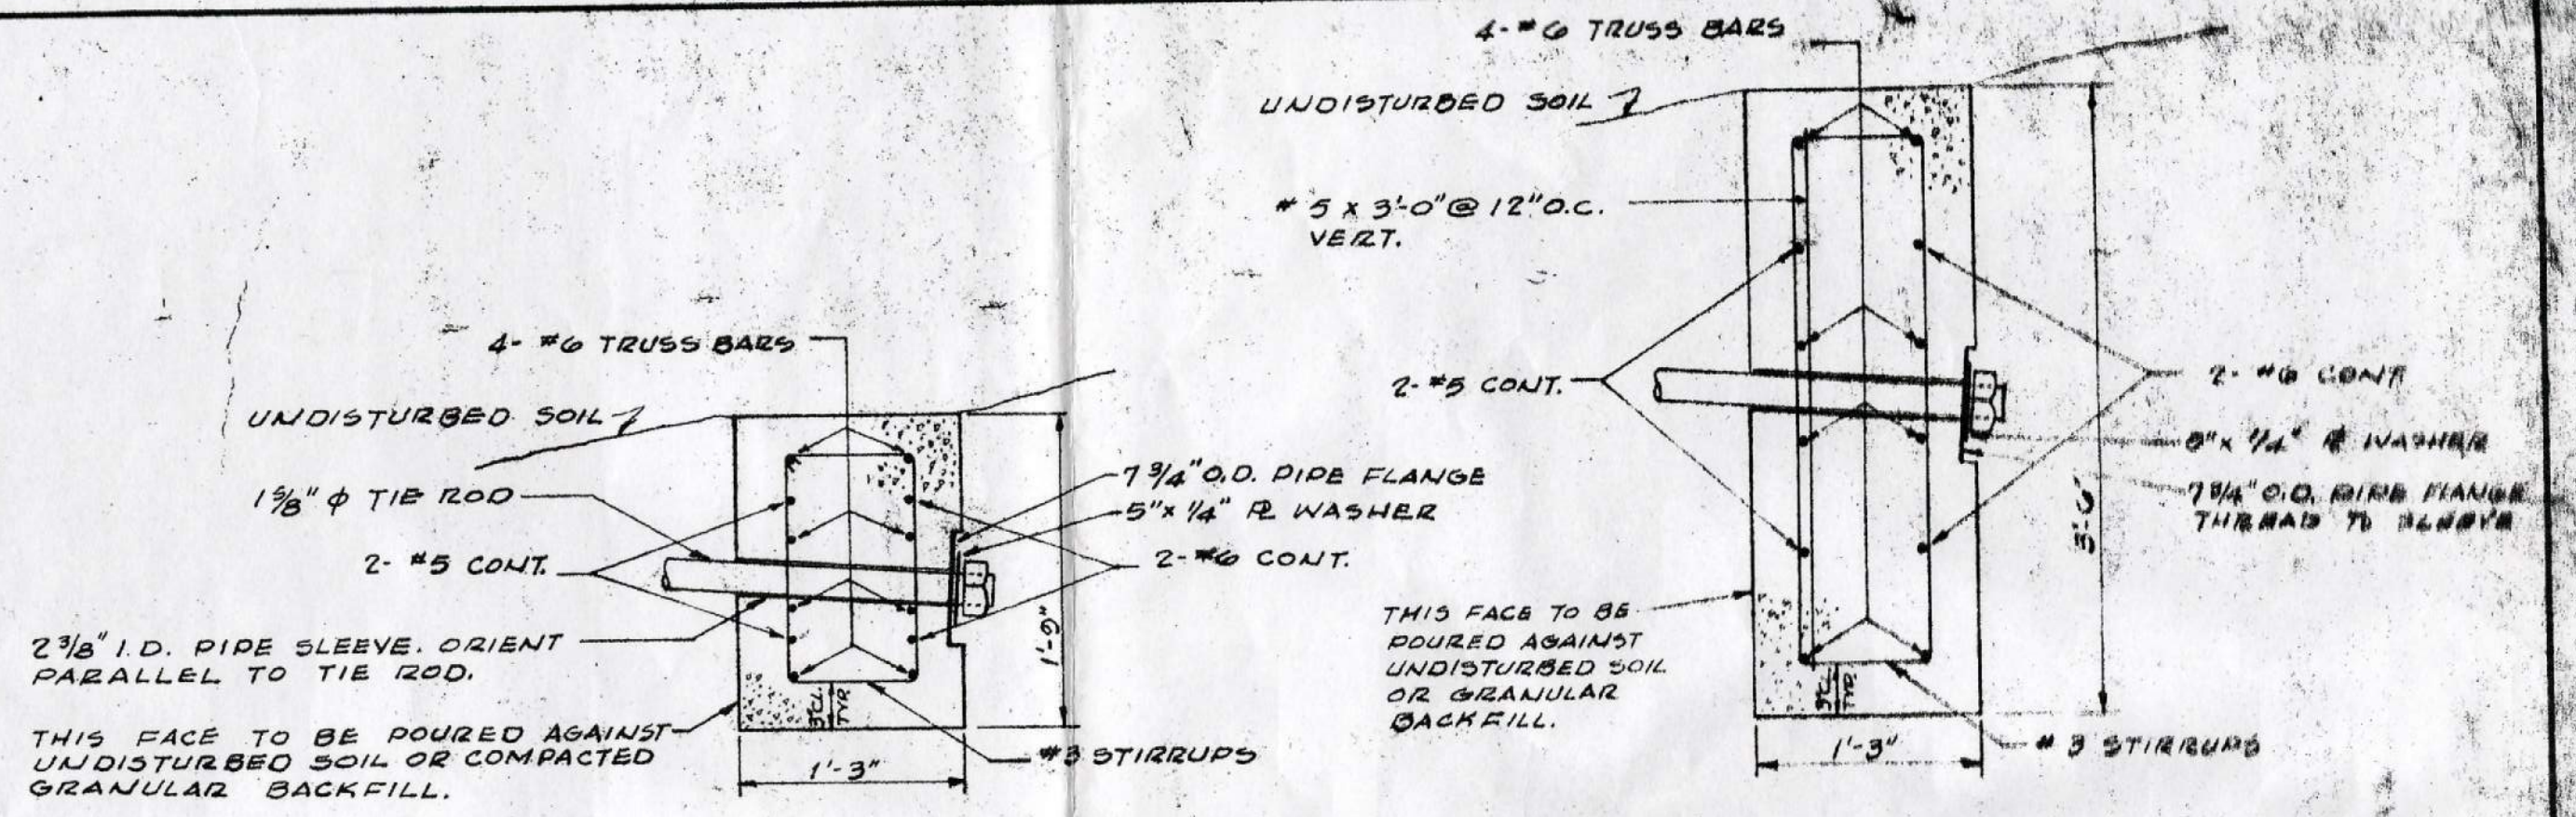 4-#6 TRUSS BARS
UNDISTURBED SOIL
1 5/8" φ TIE ROD
2-#5 CONT.
2 3/8" I.D. PIPE SLEEVE. ORIENT
PARALLEL TO TIE ROD.
THIS FACE TO BE POURED AGAINST
UNDISTURBED SOIL OR COMPACTED
GRANULAR BACKFILL.
7 3/4" O.D. PIPE FLANGE
5" x 1/4" PL WASHER
2-#6 CONT.
1'-9"
3"CL.
TYP.
#3 STIRRUPS
1'-3"
4-#6 TRUSS BARS
UNDISTURBED SOIL
#5 x 3'-0" @ 12" O.C.
VERT.
2-#5 CONT.
THIS FACE TO BE
POURED AGAINST
UNDISTURBED SOIL
OR GRANULAR
BACKFILL.
2-#6 CONT
x 1/4" PL WASHER
7 3/4" O.D. PIPE FLANGE
THREAD TO SLEEVE
3"CL.
TYP.
#3 STIRRUPS
1'-3"